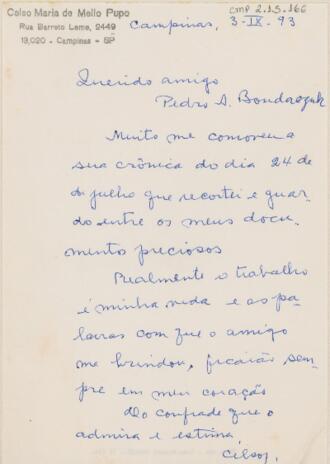 Celso Maria de Mello Pupo
Rua Barreto Leme, 2449
13,020 - Campinas - SP
CMP 2.1.5.166
Campinas, 3-IX-93
Querido amigo
Pedro A. Bondaczuk
Muito me comoveu a
sua crônica do dia 24 de
de julho que recortei e guar-
do entre os meus docu-
mentos preciosos
Realmente o trabalho
é minha vida e as pa-
lavras com que o amigo
me brindou, ficarão sem-
pre em meu coração
Do confrade que o
admira e estima,
Celso,